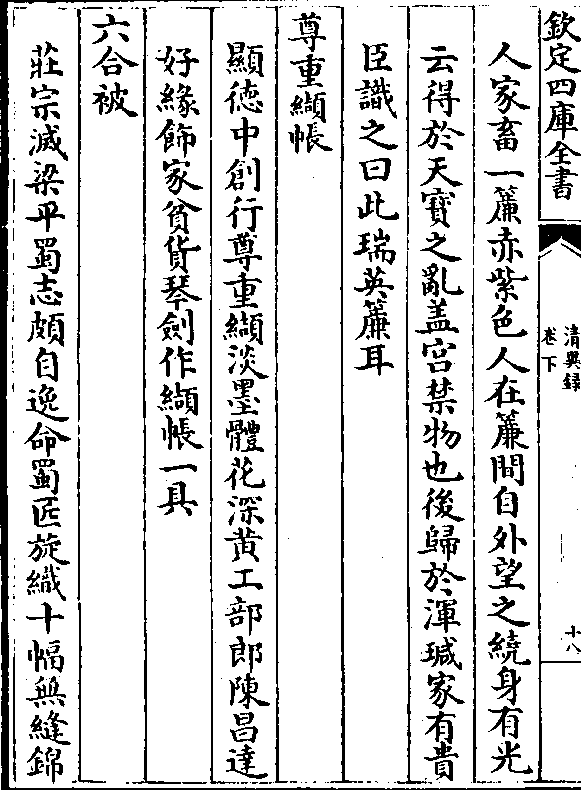 欽定四庫全書
清異録
卷下
十八
人家畜一簾赤紫色人在簾間自外望之繞身有光
云得於天寶之亂盖宫禁物也後歸於渾瑊家有貴
臣識之曰此瑞英簾耳
尊重纈帳
顯徳中創行尊重纈淡墨體花深黄工部郎陳昌達
好緣飾家貧貨琴劍作纈帳一具
六合被
莊宗滅梁平蜀志頗自逸命蜀匠旋織十幅無縫錦